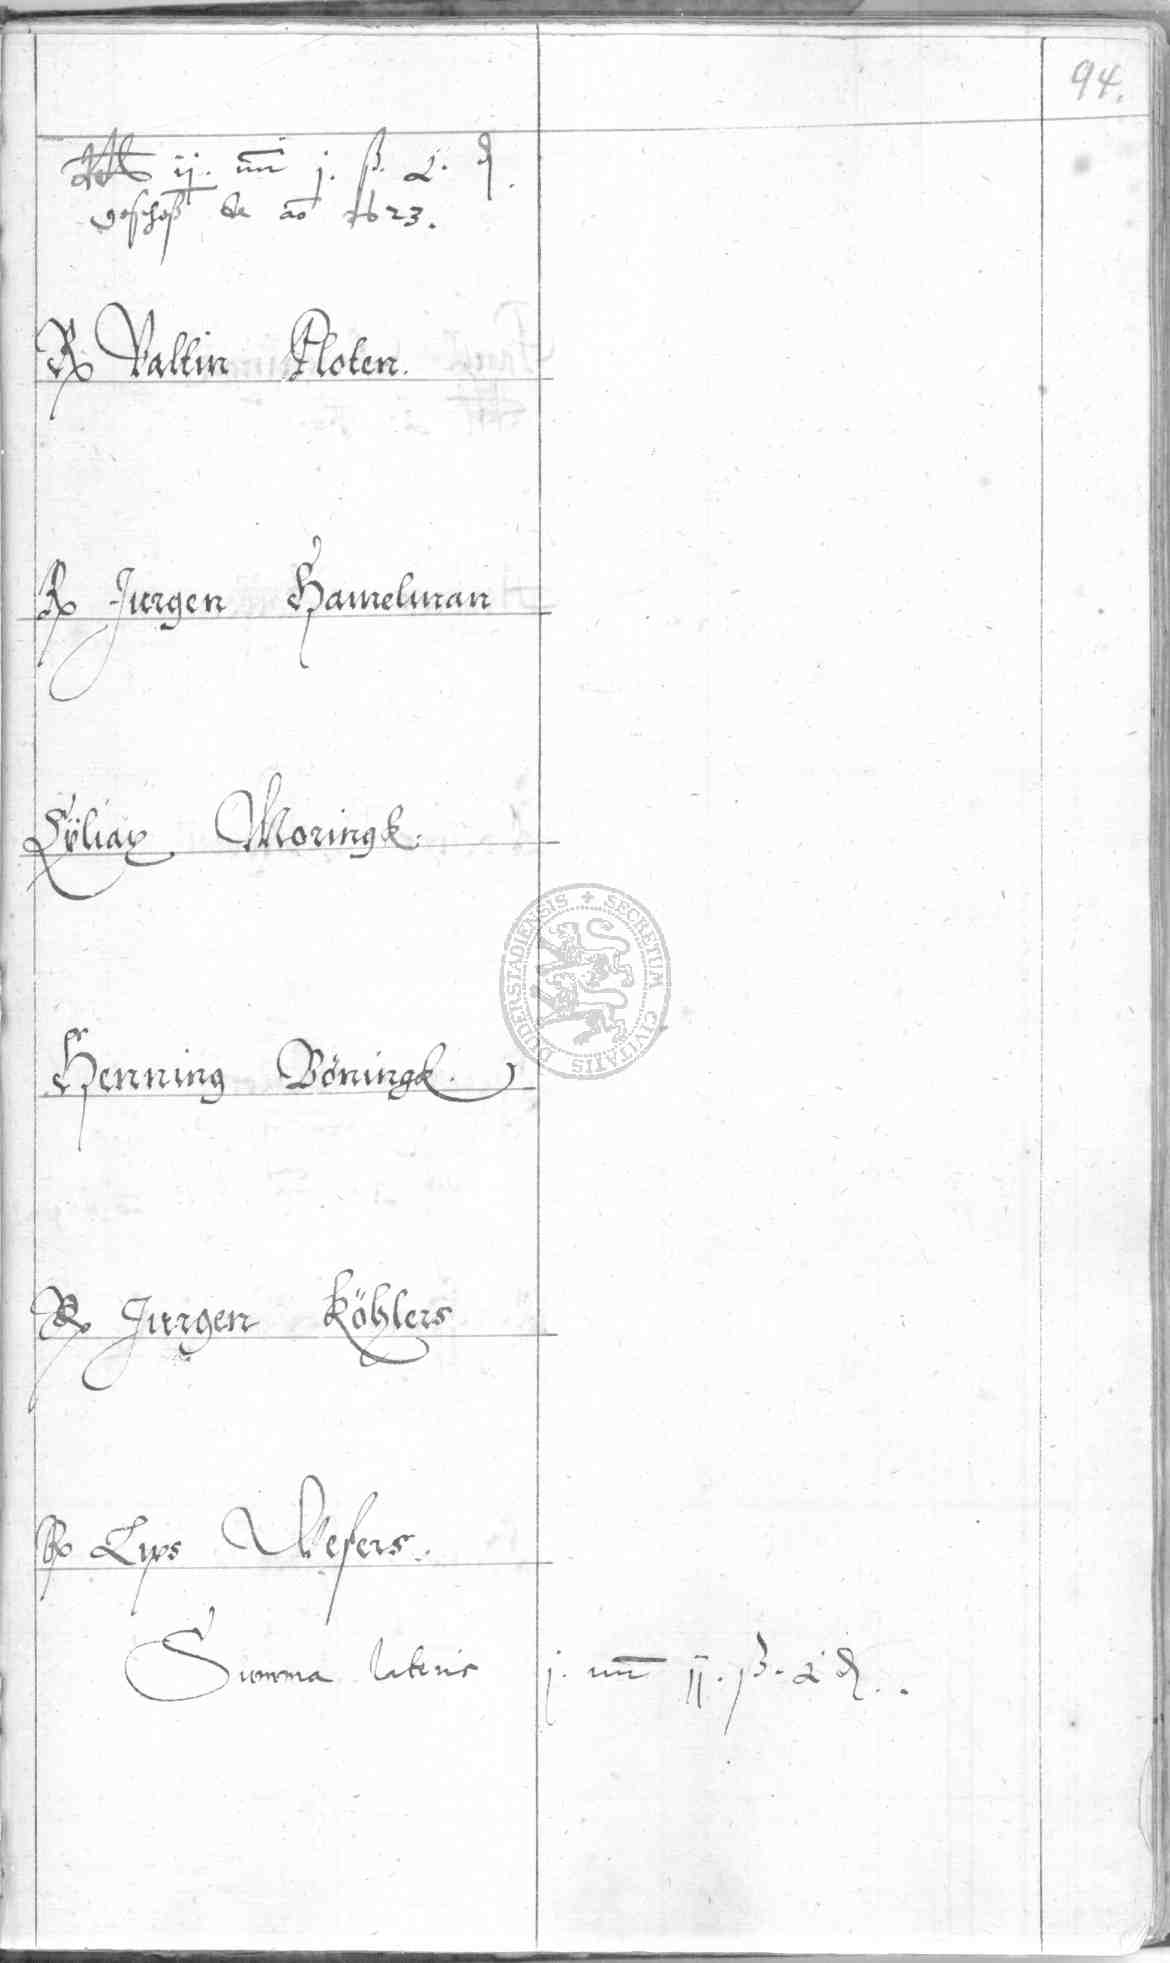 94.
ij. mr j. ß. 2. ₰.
geschoß de ao 1623.
Rx Valtin Ploten.
Rx Jurgen Hamelman
Ciliax Moringk.
Henning Böningk.
Rx Jurgen Köhlers
Rx Lips Wesers.
Summa lateris j. mr ij. ß. 2 ₰.
SECRETUM CIVITATIS DUDERSTADIENSIS